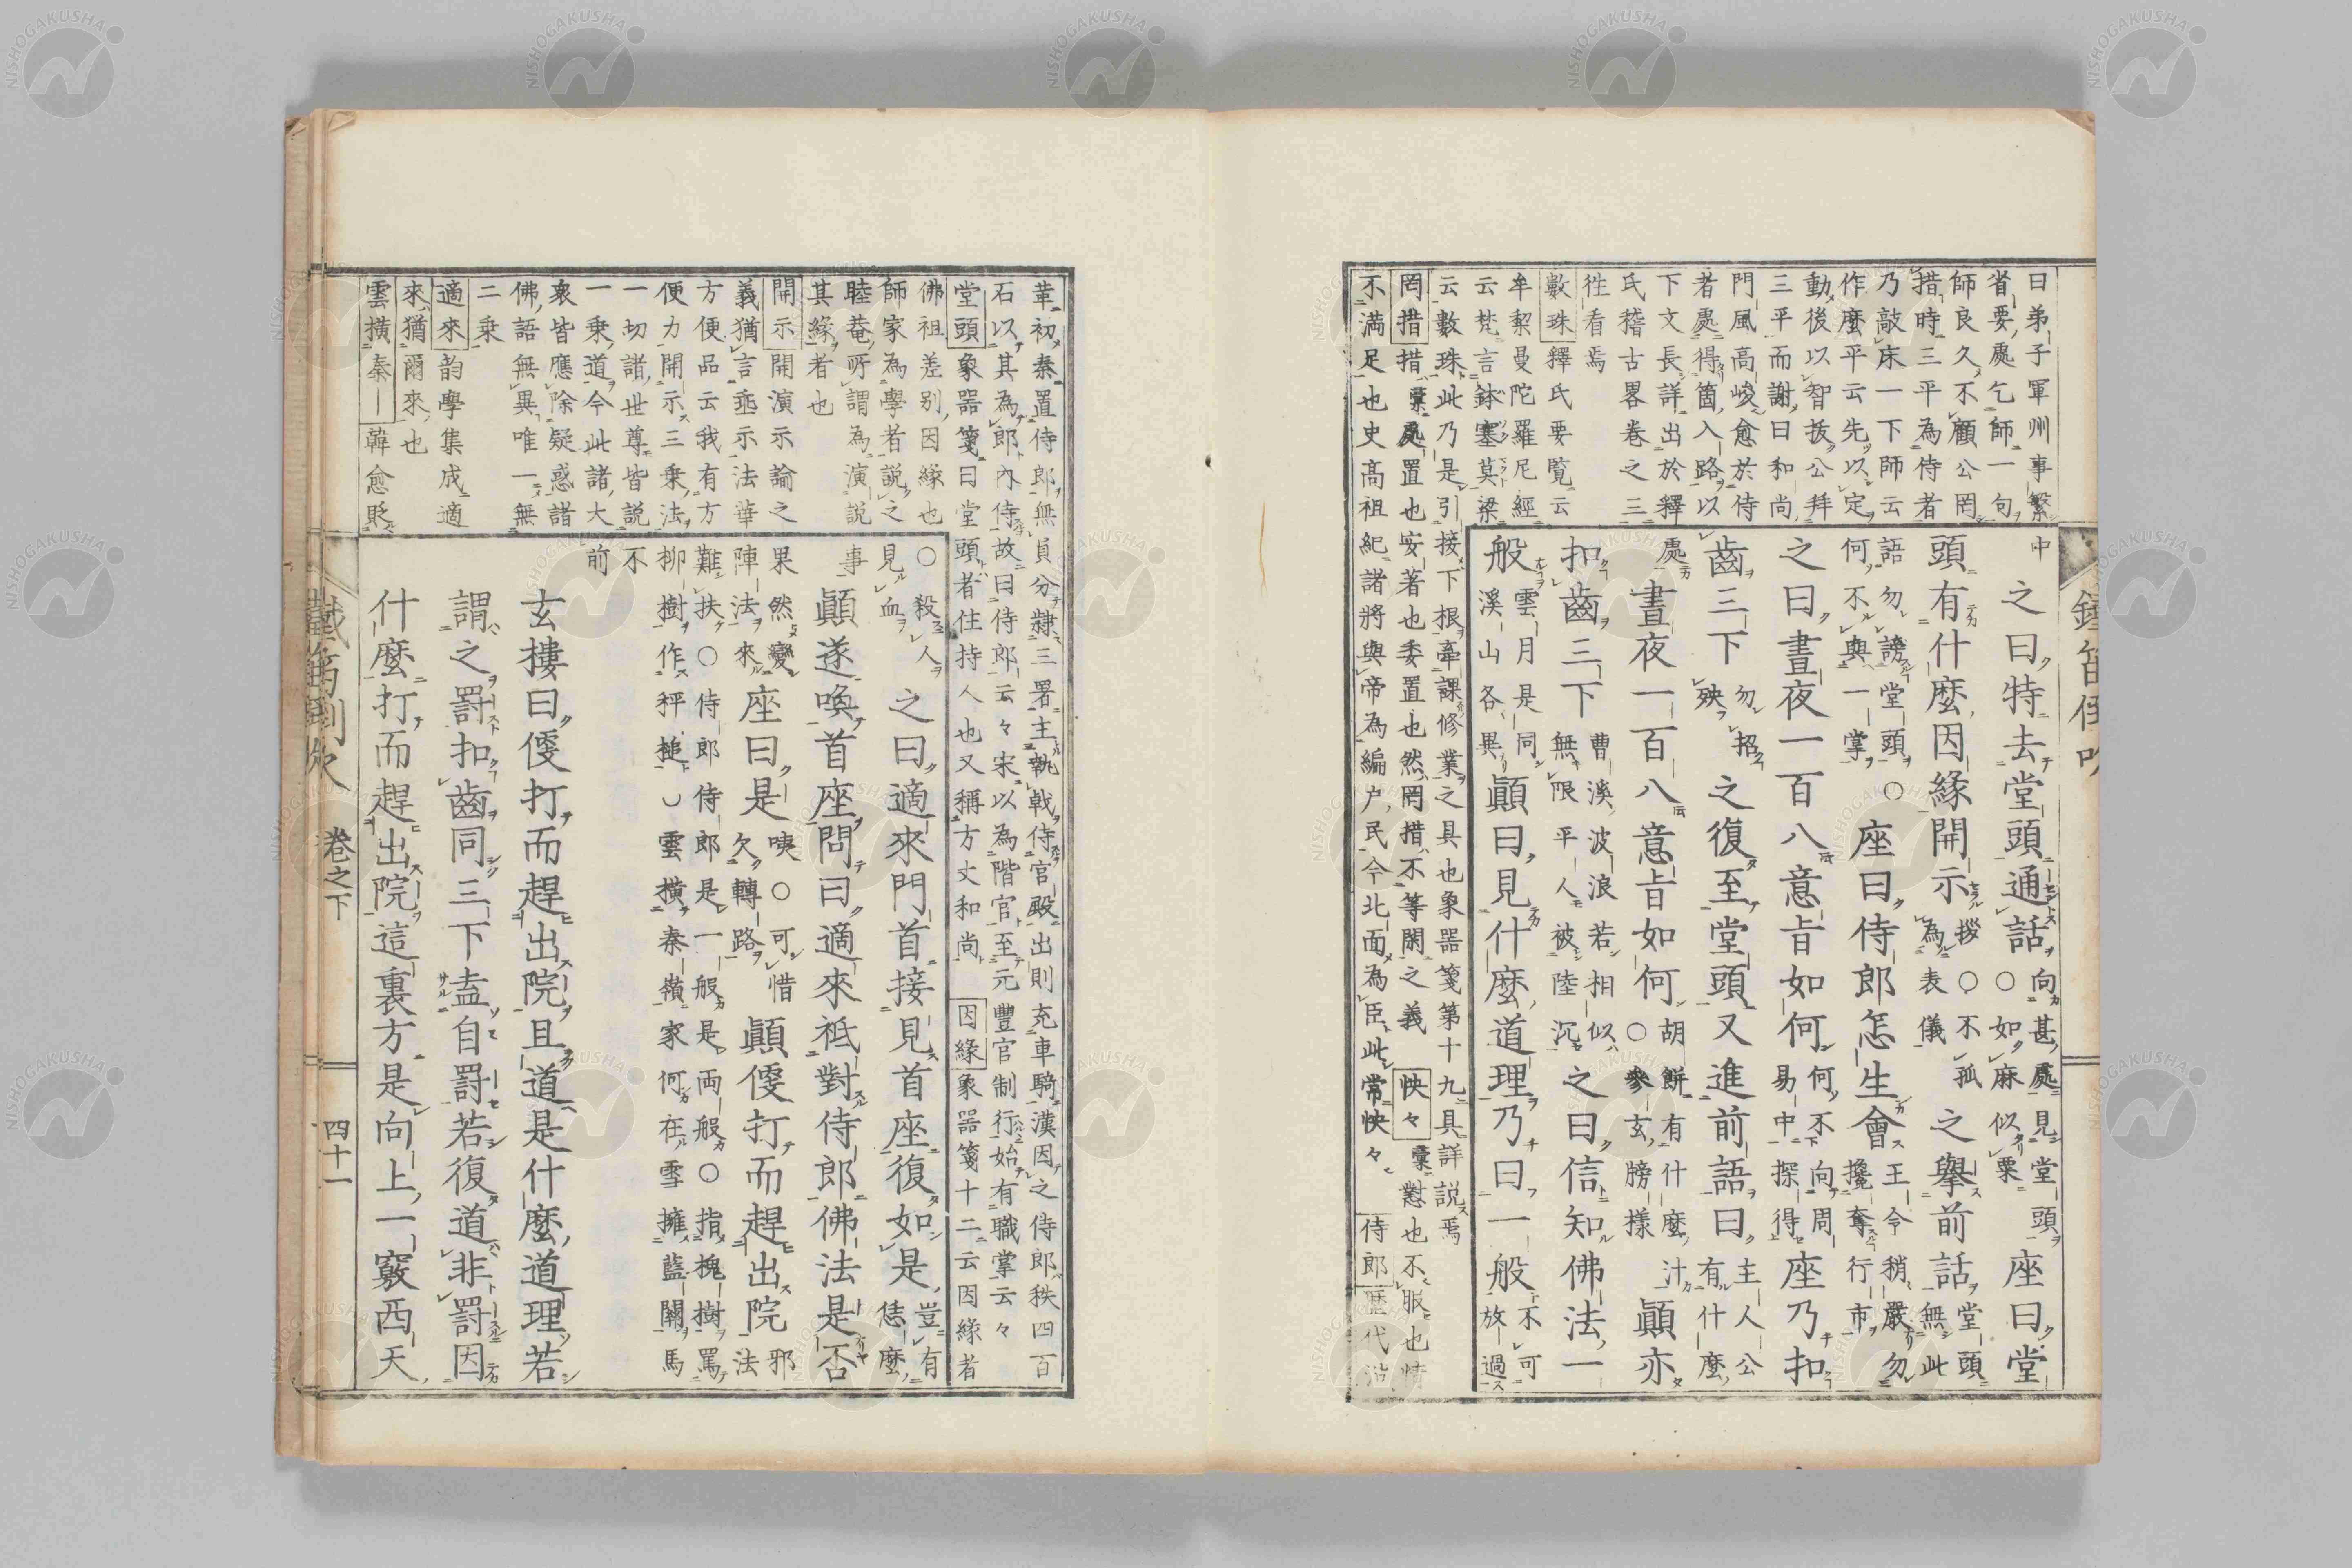 曰弟子軍州事繁
省要處乞師一句
師良久不顧公罔
措時三平為侍者
乃敲床一下師云
作麼平云先以定
動後以智拔公拜
三平而謝曰和尚
門風高峻愈於侍
者處得箇入路以
下文長詳出於釋
氏稽古畧卷之三
徃看焉
數珠釋氏要覧云
牟梨曼陀羅尼經
云梵言鉢塞莫梁
云數珠此乃是引接下根牽課修業之具也象器箋第十九具詳説焉
罔措措彙處置也安著也委置也然罔措不等閑之義 怏々彙懟也不服也情
不満足也史高祖紀諸將與帝為編户民今北面為臣此常怏々 侍郎歷代沿
中之曰特去堂頭通話向甚處見堂頭○如麻似粟座曰堂
頭有什麼因緣開示拶○不孤為表儀之擧前話堂頭無此
語勿謗堂頭○何不與一掌座曰侍郎怎生會王令稍嚴勿攙奪行市
之曰晝夜一百八意旨如何何不向周易中探得座乃扣
齒三下勿招殃之復至堂頭又進前語曰主人公有什麼
處晝夜一百八意旨如何胡餅有什麼汁○參玄膀樣顚亦
扣齒三下曹溪波浪若相似無限平人被陸沉之曰信知佛法一
般雲月是同溪山各異顚曰見什麼道理乃曰一般不可放過
鐵笛倒吹
革初秦置侍郎無員分隷三署主執戟侍官殿出則充車騎漢因之侍郎秩四百
石以其為郎内侍故曰侍郎云々宋以為階官至元豐官制行始有職掌云々
堂頭象器箋曰堂頭者住持人也又稱方丈和尚 因緣象器箋十二云因緣者
佛祖差别因緣也
師家為學者説之
睦菴所謂為演説
其緣者也
開示開演示諭之
義猶言埀示法華
方便品云我有方
便力開示三乗法
一切諸世尊皆説
一乗道今此諸大
衆皆應除疑惑諸
佛語無異唯一無
二乗
適來韵學集成適
來猶爾來也
雲横秦｜韓愈貶
○殺人見血之曰適來門首接見首座復如是豈有恁麼
事顚遂喚首座問曰適來祇對侍郎佛法是否
果然變陣法來座曰是咦○可惜欠轉路顚便打而趕出院邪法
難扶○侍郎侍郎是一般是両般○指槐樹罵
柳樹作秤搥○雲横秦嶺家何在雪擁藍關馬
不
前
玄樓曰便打而趕出院且道是什麼道理若
謂之罸扣齒同三下盍自罸若復道非罸因
什麼打而趕出院這裏方是向上一竅西天
鐵笛倒吹 卷之下 四十一